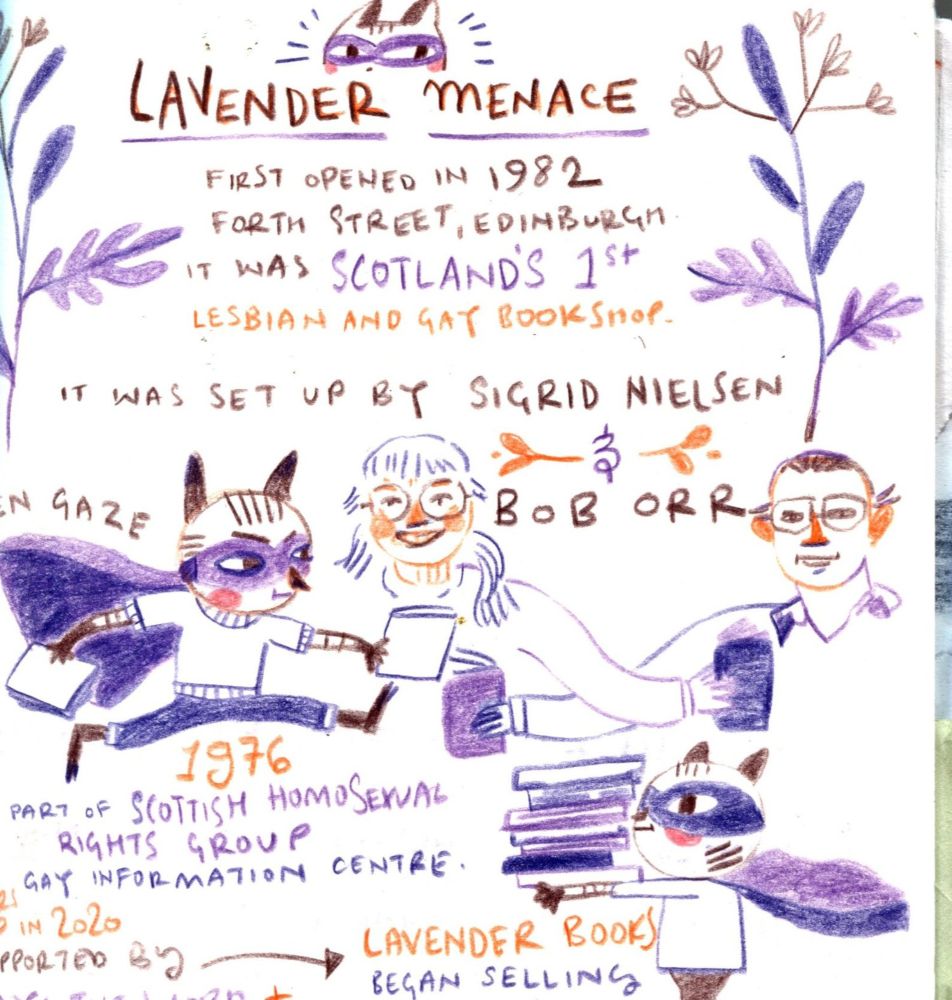 LAVENDER MENACE
FIRST OPENED IN 1982
FORTH STREET, EDINBURGH.
IT WAS SCOTLAND'S 1st
LESBIAN AND GAY BOOKSHOP.
IT WAS SET UP BY SIGRID NIELSEN
&
BOB ORR
EN GAZE
1976
PART OF SCOTTISH HOMOSEXUAL
RIGHTS GROUP
GAY INFORMATION CENTRE.
IN 2020
PPORTED BY
LAVENDER BOOKS
BEGAN SELLING